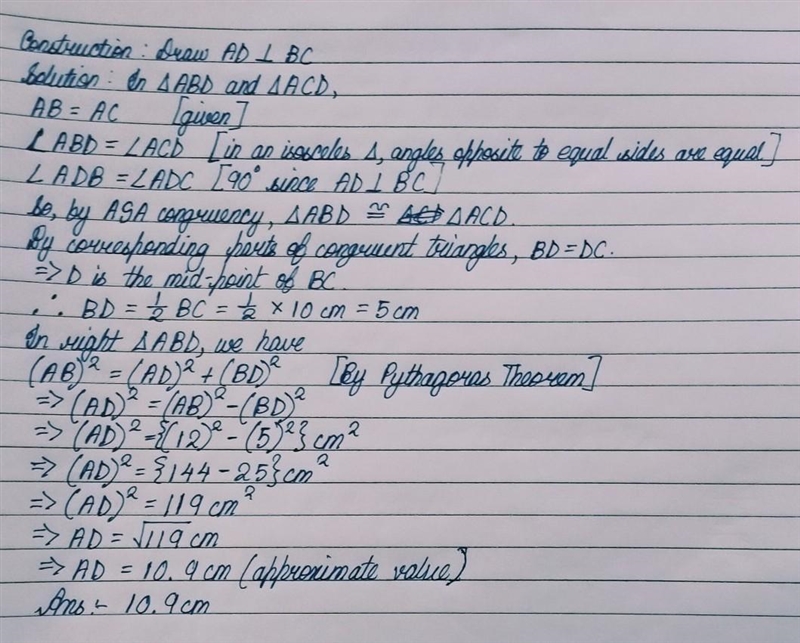 Construction: Draw AD ⊥ BC
Solution: In ΔABD and ΔACD,
AB = AC [given]
∠ABD = ∠ACD [in an isosceles Δ, angles opposite to equal sides are equal]
∠ADB = ∠ADC [90° since AD ⊥ BC]
So, by ASA congruency, ΔABD ≅ ΔACD.
By corresponding parts of congruent triangles, BD = DC.
⇒ D is the mid-point of BC.
∴ BD = 1/2 BC = 1/2 × 10 cm = 5 cm
In right ΔABD, we have
(AB)² = (AD)² + (BD)² [By Pythagoras Theorem]
⇒ (AD)² = (AB)² - (BD)²
⇒ (AD)² = {(12)² - (5)²} cm²
⇒ (AD)² = {144 - 25} cm²
⇒ (AD)² = 119 cm²
⇒ AD = √119 cm
⇒ AD = 10.9 cm (approximate value)
Ans:- 10.9 cm